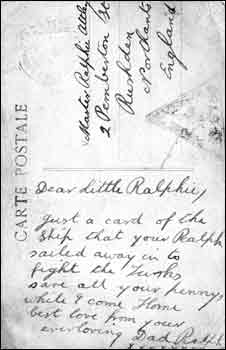 CARTE POSTALE
Master Ralphie
2 Pemberton St
Rushden
Northants
England
Dear Little Ralphie,
Just a card of the
ship that your Ralph
sailed away in to
fight the Turks
save all your pennys
while I come Home
best love from your
everloving Dad Ralph